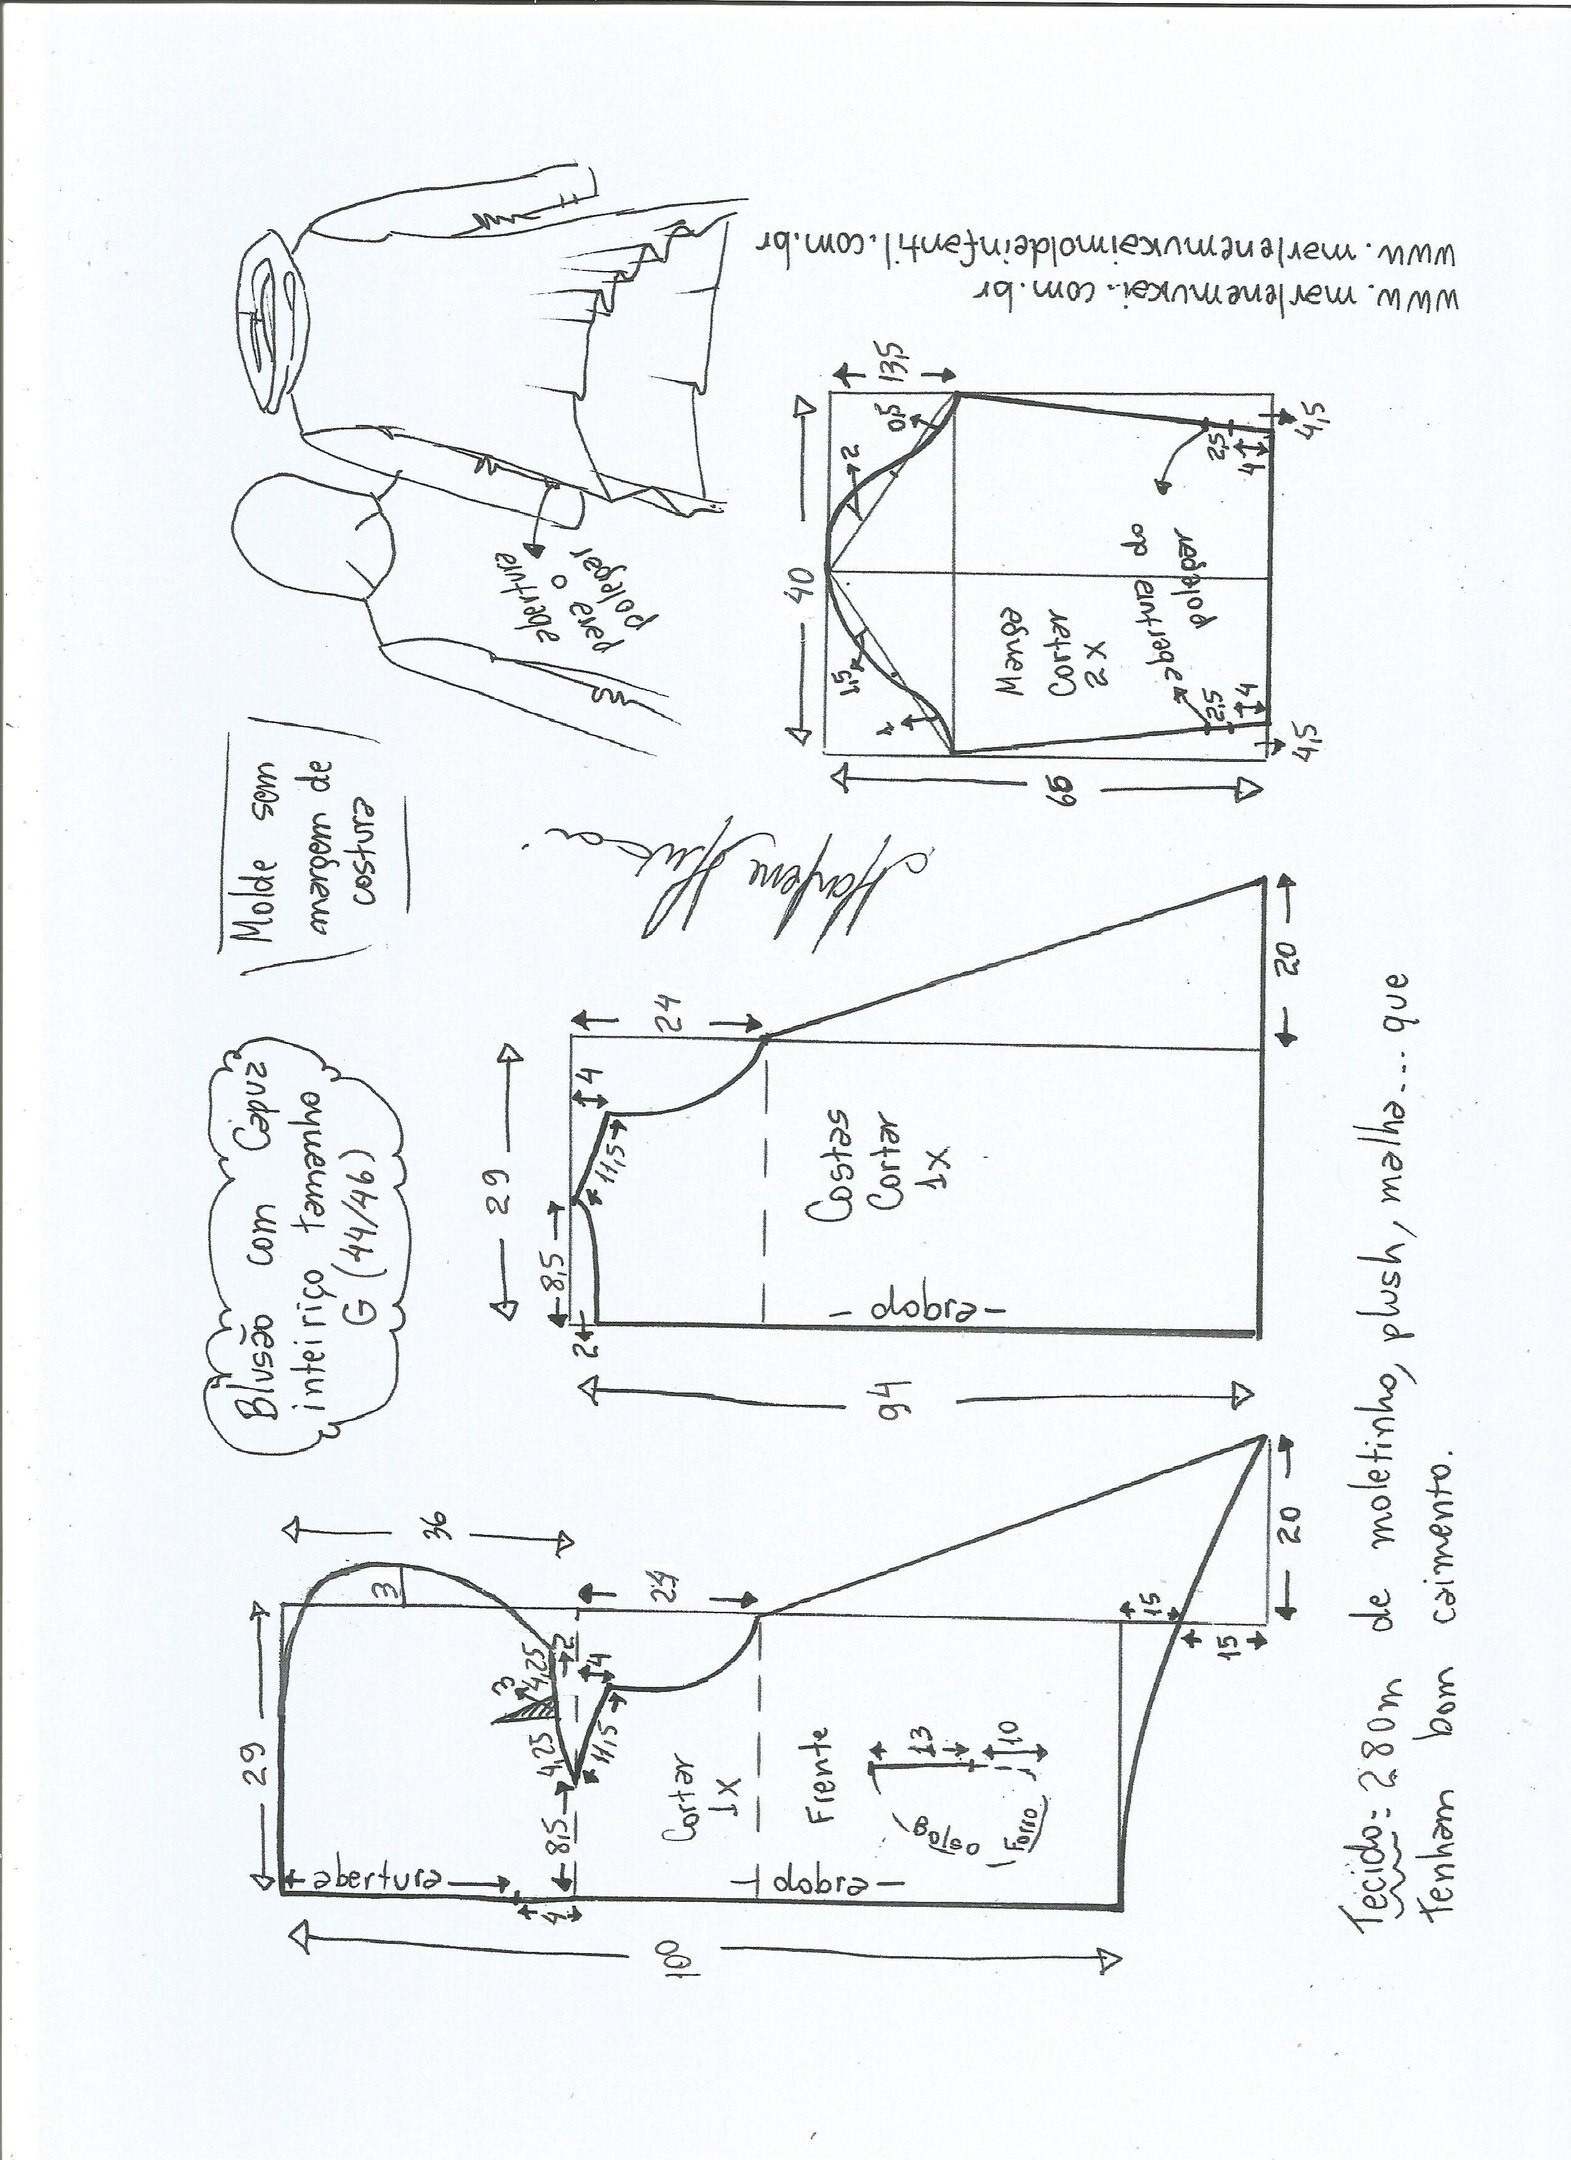 Blusão com Capuz
inteiriço tamanho
G (44/46)
Molde sem
margem de
costura
abertura
para o
polegar
29
36
3
3
4,25
4,25
2
4
11,5
8,5
abertura
4
24
100
Cortar
1X
Frente
dobra
Bolso
13
10
Forro
15
15
20
29
8,5
2
11,5
4
24
94
Costas
Cortar
1X
dobra
20
Marlene Mukai
40
13,5
0,5
2
1,5
1
65
Manga
Cortar
2X
abertura do
polegar
2,5
4
4,5
2,5
4
4,5
www.marlenemukai.com.br
www.marlenemukaimoldeinfantil.com.br
Tecido: 2.80m de moletinho, plush, malha... que
Tenham bom caimento.